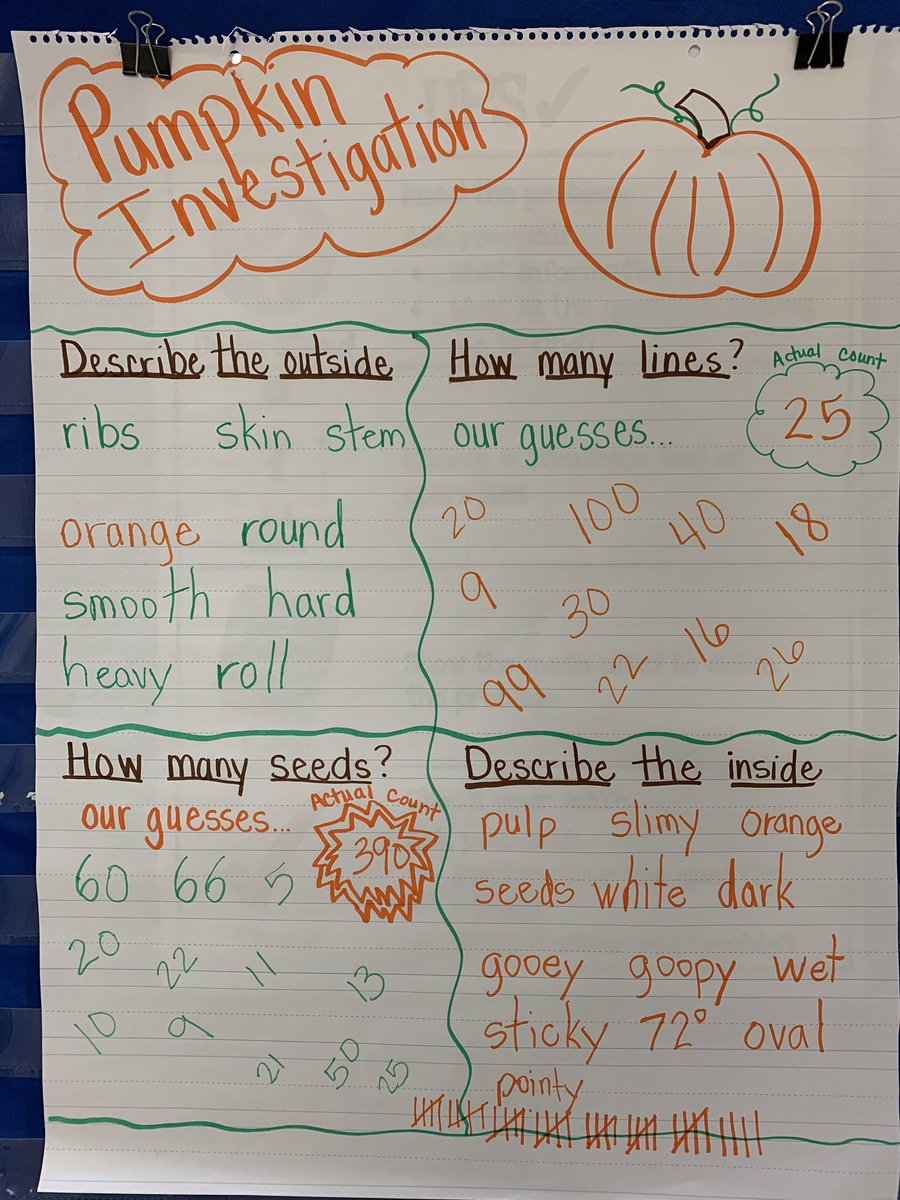 Pumpkin
Investigation
Describe the outside
ribs skin stem
orange round
smooth hard
heavy roll
How many lines?
Actual Count
25
our guesses...
20 100 40 18
9 30
99 22 16 26
How many seeds?
our guesses...
Actual Count
390
60 66 5
20 22 11 13
10 9
21 50 25
Describe the inside
pulp slimy orange
seeds white dark
gooey goopy wet
sticky 72° oval
pointy